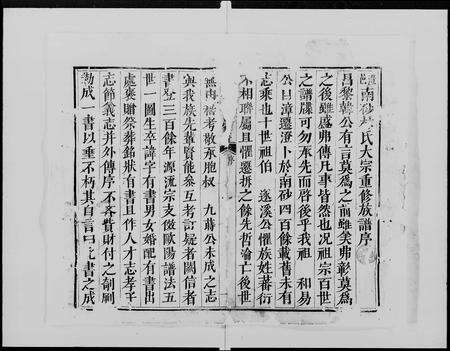 南沙 氏大宗重修族譜序
昌黎韓公有言莫爲之前雖美弗彰莫爲
之後雖盛弗傳凡事皆然也況祖宗百世
之譜牒可勿承先而啓後乎我祖 和易
公自漳遷 卜於南砂四百餘載舊未有
志乘也十世祖伯 遂溪公懼族姓蕃衍
不相聯屬且懼遷拆之餘先哲淪亡後世
無由 考敬承胞叔 九蔣公未成之志
與我族先輩賢能參互考訂疑者闕信者
書 三百餘年源流宗支倣歐陽譜法五
世一圖生卒諱字有書男女婚配有書出
處褒贈祭葬銘狀有書且作人才志孝子
志節義志幷外傳序不吝貲財付之剞劂
勒成一書以垂不朽其自言曰 書之成